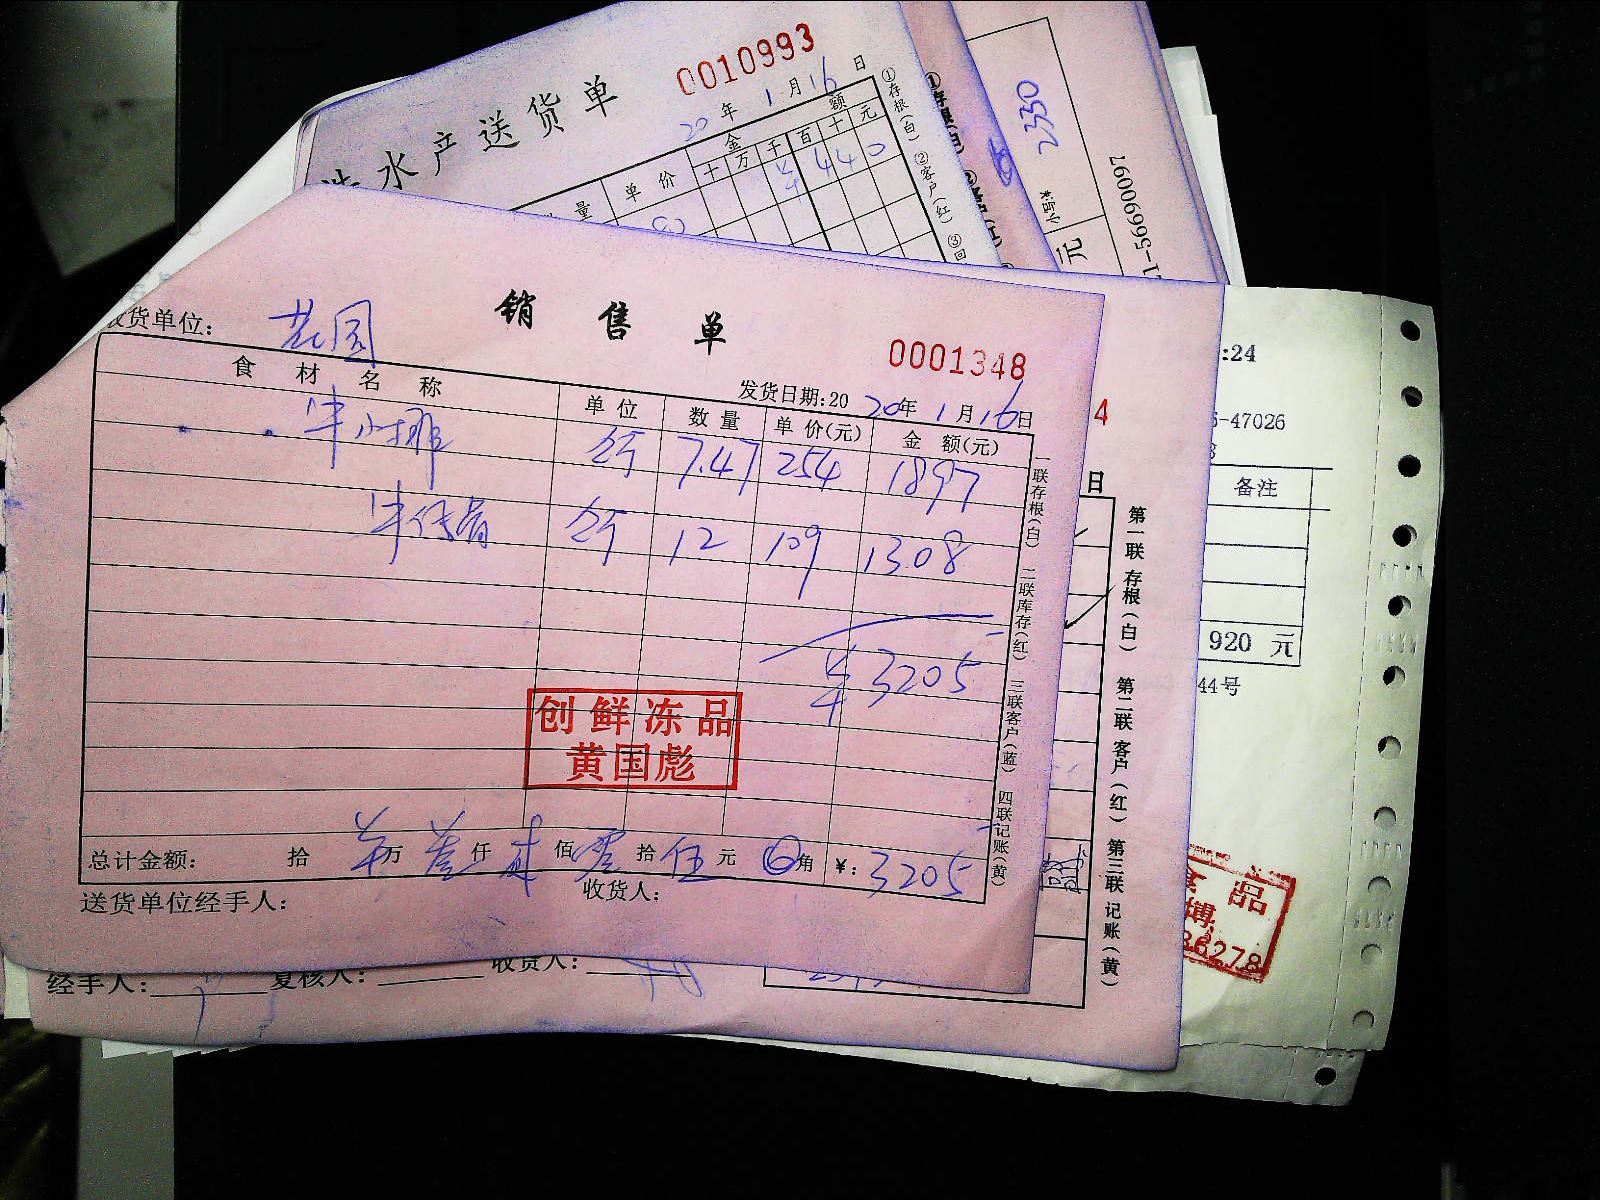 水产送货单
0010993
20年1月16日
数量 单价 金额
十万千百十元
¥4440
80
①存根(白) ②客户(红) ③回
2330
小 *
元
1-56609097
销售单
收货单位: 花园
0001348
发货日期:2020年1月16日
食材名称 单位 数量 单价(元) 金额(元)
牛小排 公斤 7.47 254 1897
牛仔骨 公斤 12 109 1308
¥3205
创鲜冻品
黄国彪
总计金额: 拾 万 叁仟 贰佰 零拾 伍元 0角 ¥:3205
送货单位经手人: 收货人:
一联存根(白) 二联库存(红) 三联客户(蓝) 四联记账(黄)
4
日
第一联 存根(白) 第二联 客户(红) 第三联 记账(黄)
经手人: 复核人: 收货人:
:24
-47026
备注
920 元
44号
品
博
36278